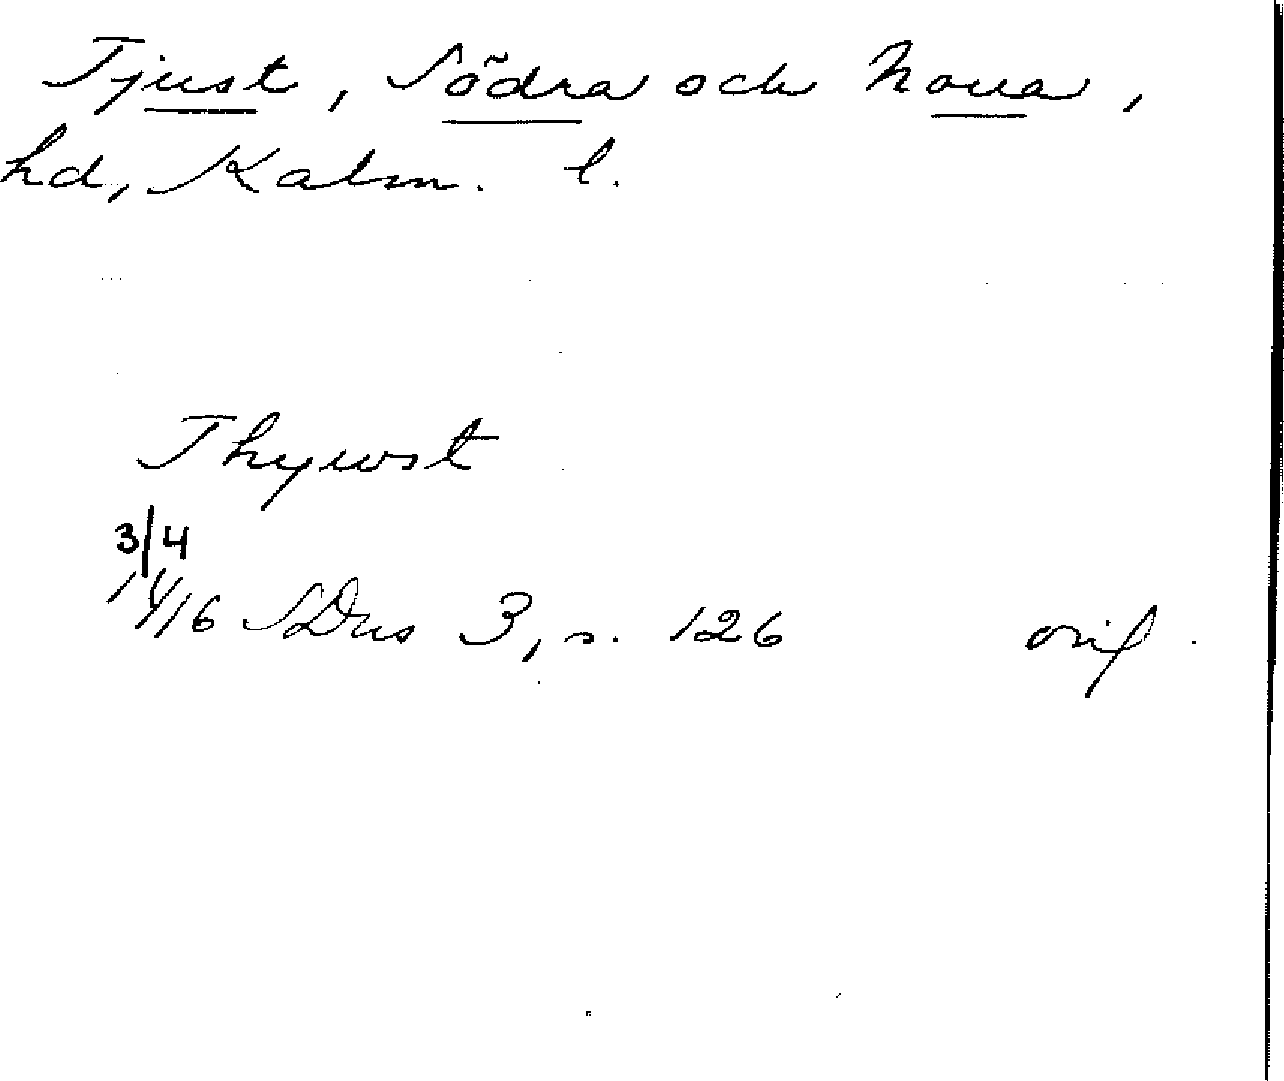 Tjust, Södra och Norra,
hd, Kalm. l.
Thywst
3/4
1416 SDns 3, s. 126 orig.